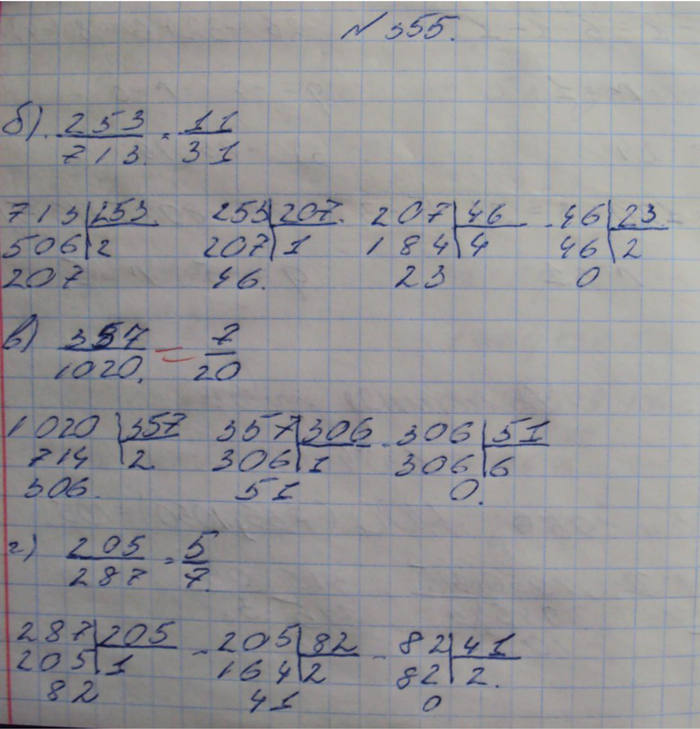 № 355.
б) 253/713 = 11/31
713 | 253   253 | 207   207 | 46   46 | 23
506 | 2   207 | 1   184 | 4   46 | 2
207   46   23   0
в) 357/1020 = 7/20
1020 | 357   357 | 306   306 | 51
714 | 2   306 | 1   306 | 6
306   51   0.
г) 205/287 = 5/7
287 | 205   205 | 82   82 | 41
205 | 1   164 | 2   82 | 2.
82   41   0